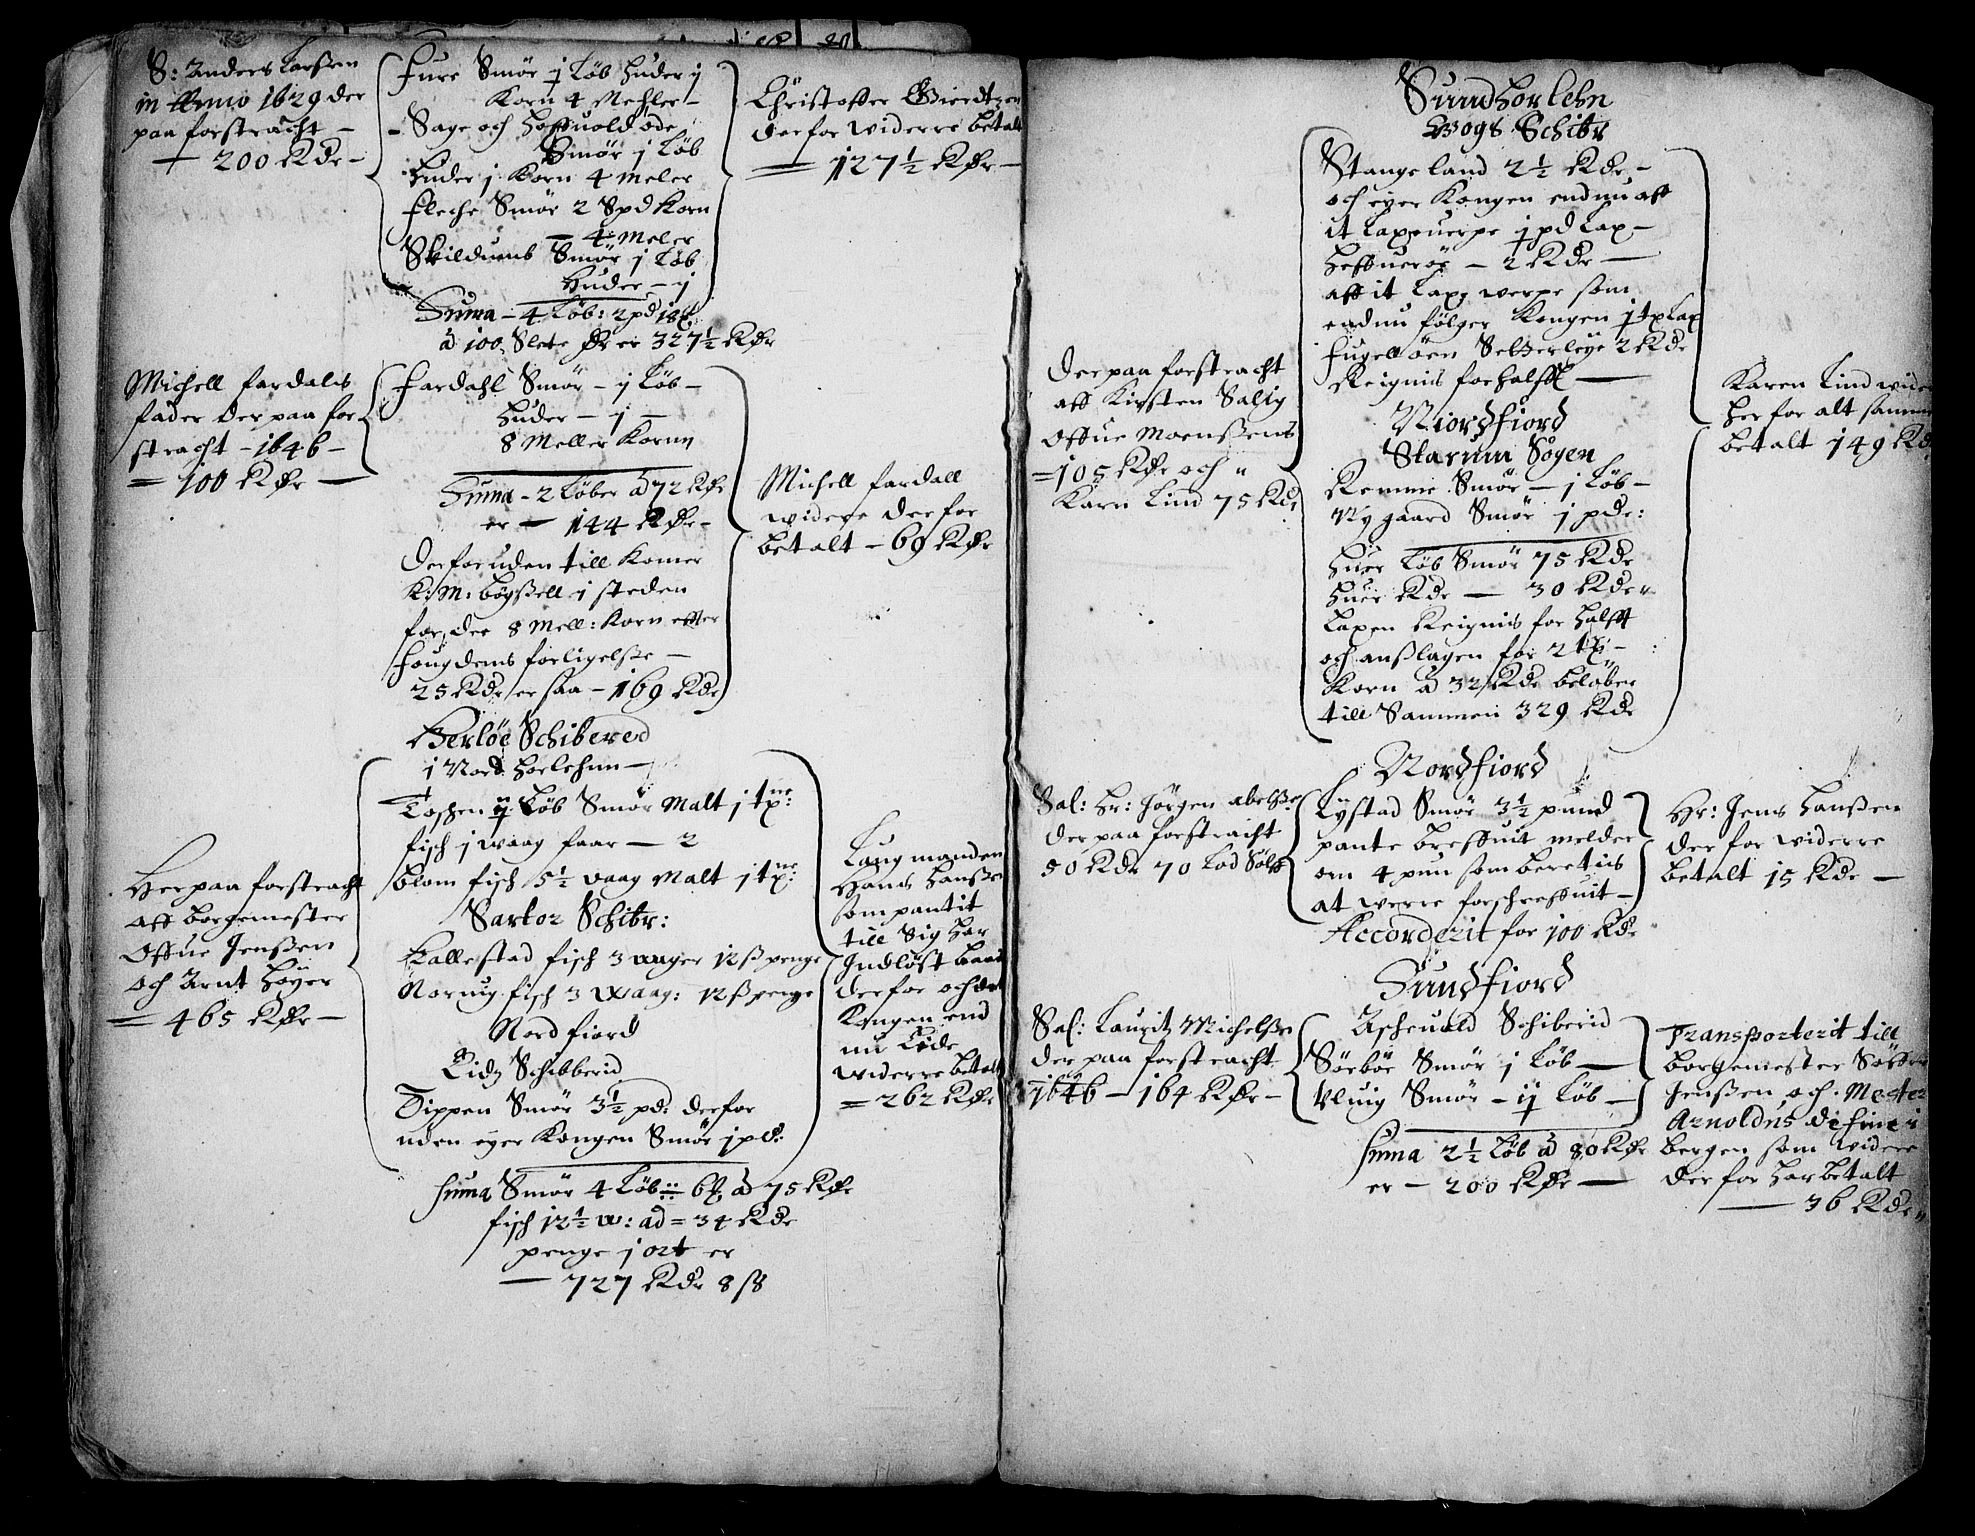 S: Anders Larssen
in Anno 1629 der
paa forstracht —
— 200 Rdr —
Fure Smör j Löb Huder ij
Korn 4 Mehler —
Sage och Hoffuold öde
Smör j Löb
Huder j Korn 4 Meler
Fleche Smör 2 Spd Korn
— 4 Meler
Skildums Smör j Löb
Huder — ij
Suma — 4 Löb: 2 pd 18
à 100 Slete dr er 327½ Rdr
Christoffer Giertzen
derfor widerre betalt
— 127½ Rdr —
Michell fardals
fader der paa for
stracht — 1646 —
— 100 Rdr —
Fardahl Smör — ij Löb —
Huder — ij —
8 Meller Kornn
Suma — 2 Löber à 72 Rdr
er — 144 Rdr —
Derforuden till Komer
K: M: bögssell i steden
for der 8 Mell: Korn effter
fougdens forligelsse —
25 Rdr er saa — 169 Rdr
Michell fardall
widere derfor
betalt — 69 Rdr
Herlöe Schibered
i Nord Horlehnn —
Toschen Löb Smör Malt j tne:
fisch j waag faar — 2
blom fisch 5½ vaag Malt j tne:
Sartor Schibr:
Kallestad fisch 3 wager 12 ß penge
Noruig fisch 3 Waag: 12 ß penge
Nordfiord
Eidz Schibberid
Tippen Smör 3½ pd: derfor
uden eyer Kongen Smör j pd:
Suma Smör 4 Löb 6 à 75 Rdr
fisch 12½ w: ad = 34 Rdr
penge j ort er
— 727 Rdr 8 ß
Her paa forstracht
aff borgemester
Offue Jenssen
och Arnt Höyer
— 465 Rdr —
Laugmanden
Hans Hanssen
som pantit
till Sig har
Indlöst
derfor och
Kongen end
nu Lide
widerre betalt
= 262 Rdr
Sundhorlehn
Wogs Schibr
Stangeland 2½ Rdr —
och eyer Kongen endnu aff
it Laxeuerpe j pd Lax —
Heffueröe — 2 Rdr —
aff it Lax werpe som
endnu fölger Kongen j tx Lax
Fugell öen Setterleye 2 Rdr
Reignis for halfft —
Niordfiord
Starum Sogen
Remme Smör — j Löb —
Nygaard Smör j pdr:
Huer Löb Smör 75 Rdr
Huer Rdr — 30 Rdr
Laxen Reignis for halfft
och anslagen for 2 tx —
Korn à 32 Rdr belöber
till Sammen 329 Rdr
Der paa forstracht
aff Kirsten Salig
Offue Moenssens
— 105 Rdr och
Karn Lind 75 Rdr
Karen Lind wider
her for alt sammen
betalt 149 Rdr
Nordfiord
Sal: Hr: Jörgen abelsse
der paa forstracht
50 Rdr 70 Lod Sölff
Lystad Smör 3½ pund
pante breffuit melder
om 4 pun som beretis
at werre forschreffuit —
Accorderit for 100 Rdr
Hr: Jens Hanssen
der for widerre
betalt 15 Rdr —
Sundfiord
Sal: Lauritz Michelssen
der paa forstracht
1646 — 164 Rdr —
Ascheuold Schiberid
Sörböe Smör j Löb —
Vluig Smör — ij Löb —
Suma 2½ Löb à 80 Rdr
er — 200 Rdr —
Transporterit till
borgemester Söffren
Jenssen och Mester
Arnoldus de fine i
bergen som widere
derfor har betalt
— 36 Rdr